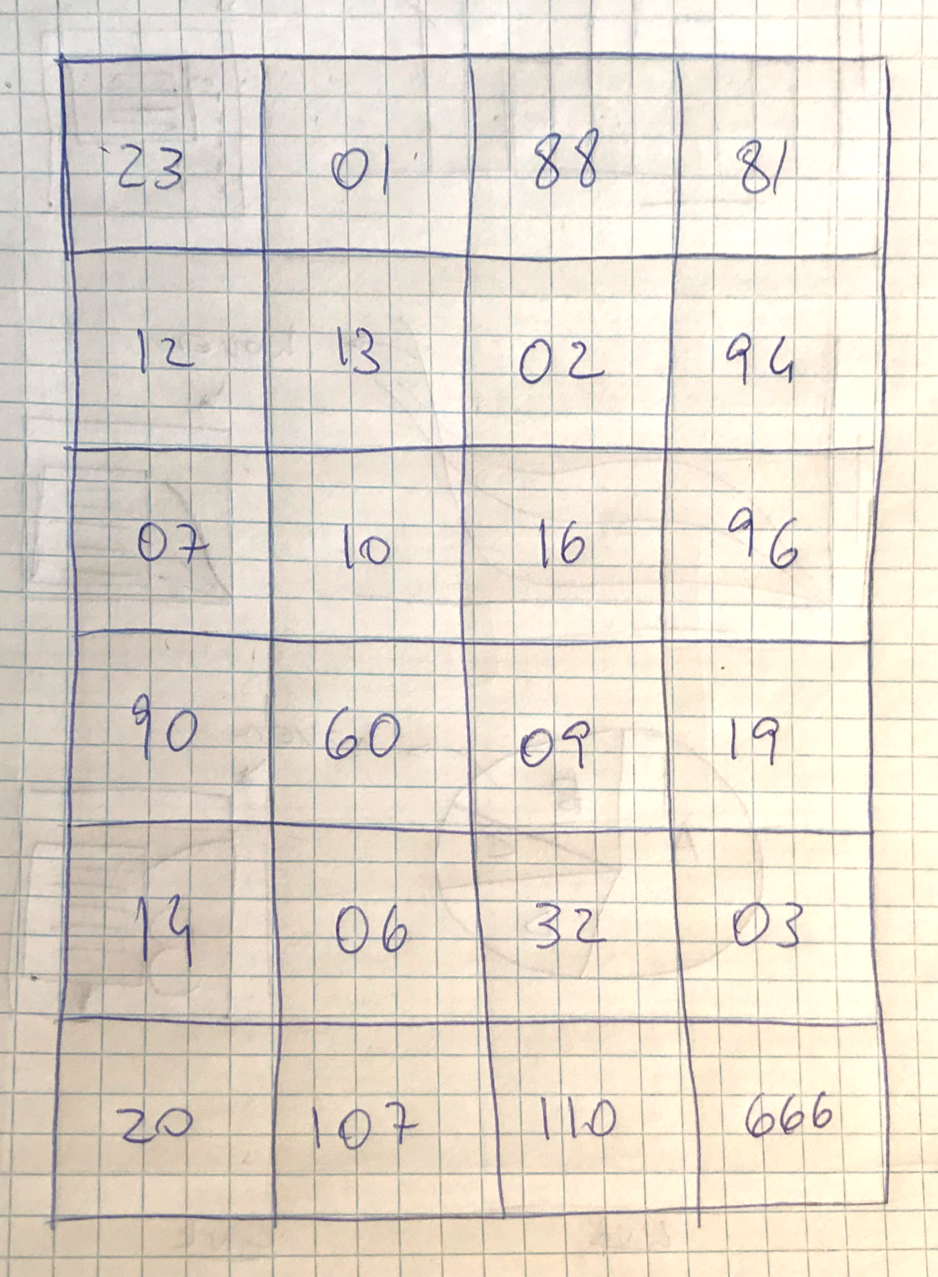 23 01 88 81
12 13 02 94
07 10 16 96
90 60 09 19
14 06 32 03
20 107 110 666